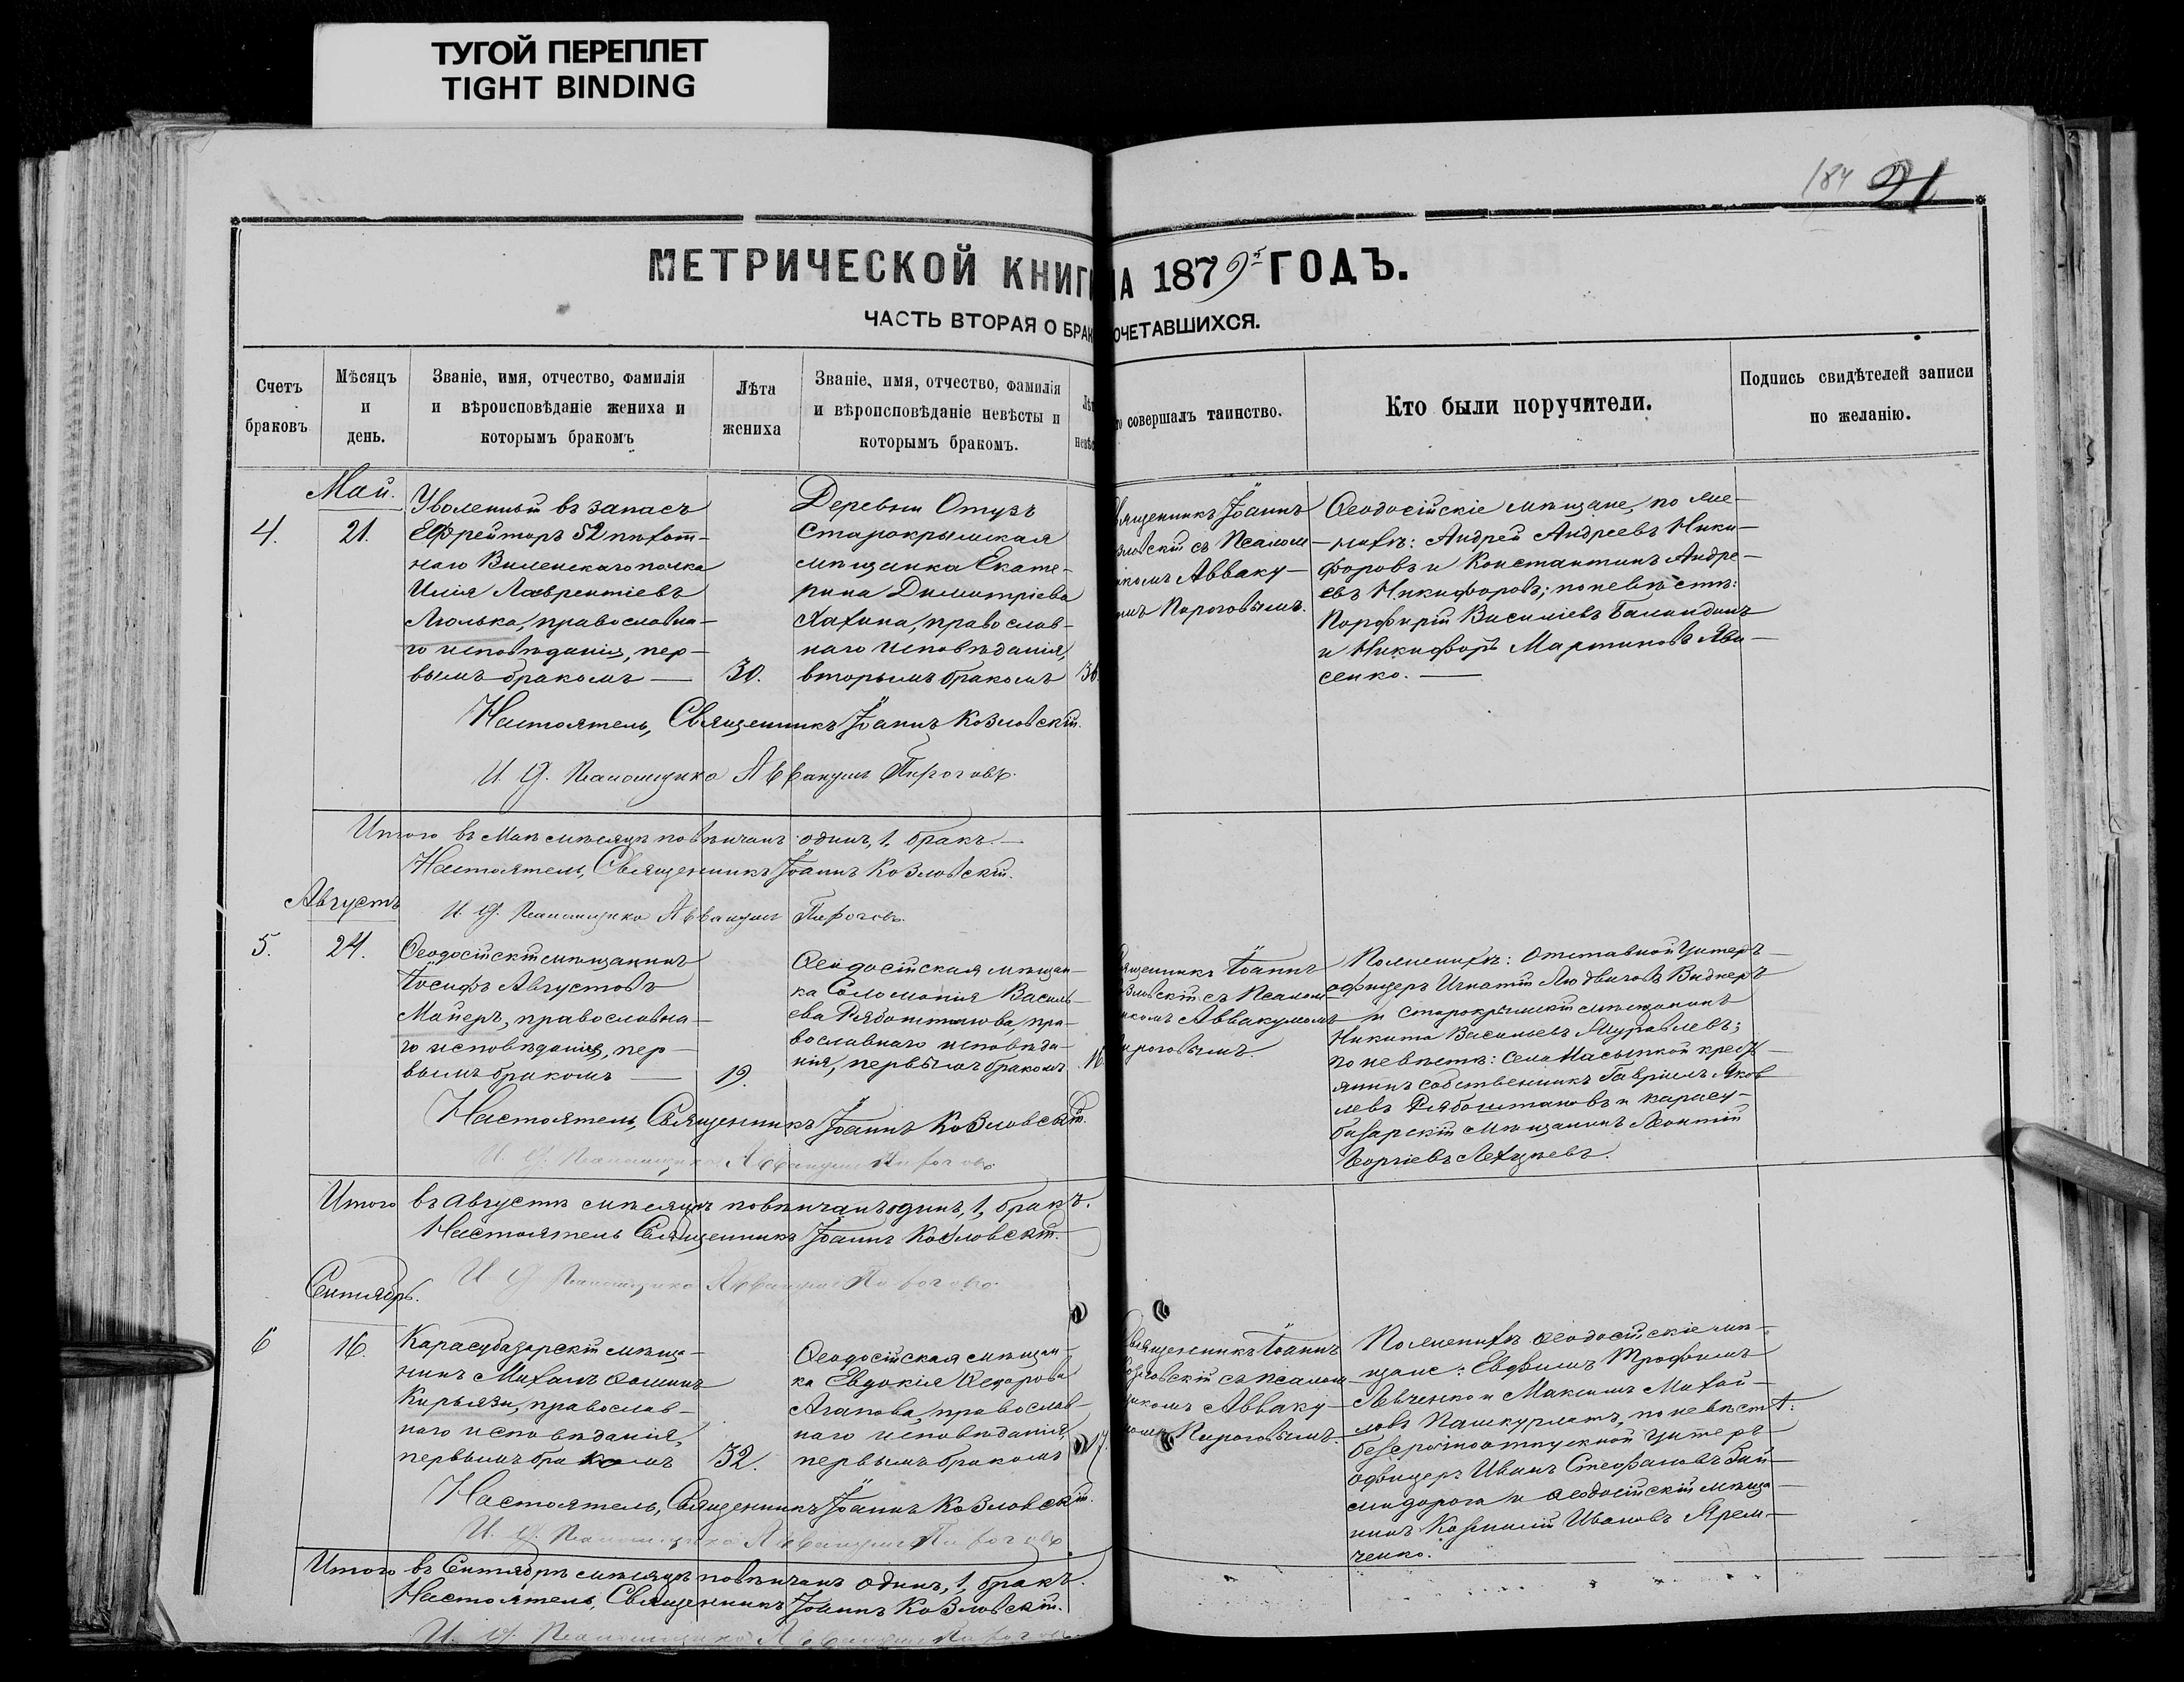 ТУГОЙ ПЕРЕПЛЕТ
TIGHT BINDING
184 91
МЕТРИЧЕСКОЙ КНИГ НА 1879й ГОДЪ.
ЧАСТЬ ВТОРАЯ О БРАК ОЧЕТАВШИХСЯ.
Счетъ браковъ
Мѣсяцъ и день.
Званіе, имя, отчество, фамилія
и вѣроисповѣданіе жениха и
которымъ бракомъ
Лѣта
жениха
Званіе, имя, отчество, фамилія
и вѣроисповѣданіе невѣсты и
которымъ бракомъ.
совершалъ таинство.
Кто были поручители.
Подпись свидѣтелей записи
по желанію.
Май.
4.
21.
Уволенный въ запасъ
Ефрейторъ 52 пѣхот-
наго Виленскаго полка
Илія Лаврентіевъ
Люлька, православна-
го исповѣданія, пер-
вымъ бракомъ —
30.
Деревни Отузъ
Старокрымская
мѣщанка Екате-
рина Димитріева
православ-
наго исповѣданія,
вторымъ бракомъ
30.
вященникъ Іоаннъ
зловскій съ Псалом-
комъ Авваку-
омъ Пироговымъ.
Ѳеодосійскіе мѣщане, по же-
нихѣ: Андрей Андреевъ Ники-
форовъ и Константинъ Андре-
евъ Никифоровъ; по невѣстѣ:
Порфирій Василіевъ Баландинъ
и Никифоръ Мартиновъ
сенко. —
Настоятель, Священникъ Іоаннъ Козловскій.
И. д. Псаломщика Аввакумъ Пироговъ.
Итого въ Маѣ мѣсяцѣ повѣнчанъ одинъ, 1, бракъ. —
Настоятель, Священникъ Іоаннъ Козловскій.
И. д. Псаломщика Аввакумъ Пироговъ.
Августъ
5.
24.
Ѳеодосійскій мѣщанинъ
Іосифъ Августовъ
Майеръ, православна-
го исповѣданія, пер-
вымъ бракомъ —
19.
Ѳеодосійская мѣщан-
ка Соломонія Василь-
ева Рябоштанова, пра-
вославнаго исповѣда-
нія, первымъ бракомъ
16
ященникъ Іоаннъ
зловскій съ Псалом-
комъ Аввакумомъ
ироговымъ.
По женихѣ: отставной Унтеръ-
офицеръ Игнатій Людвиговъ Виднеръ
и старокрымскій мѣщанинъ
Никита Васильевъ Муравлевъ;
по невѣстѣ: села Насыпкой кресть-
янинъ собственникъ Гавріилъ Яков-
левъ Рябоштановъ и карасу-
базарскій мѣщанинъ Леонтій
Георгіевъ
Настоятель, Священникъ Іоаннъ Козловскій.
И. д. Псаломщика Аввакумъ Пироговъ
Итого въ Августѣ мѣсяцѣ повѣнчанъ одинъ, 1, бракъ.
Настоятель Священникъ Іоаннъ Козловскій.
И. д. Псаломщика Аввакумъ Пироговъ.
Сентябрь.
6
16.
Карасубазарскій мѣща-
нинъ Михаилъ Ѳоминъ
Кирьязи, православ-
наго исповѣданія,
первымъ бракомъ
32.
Ѳеодосійская мѣщан-
ка Евдокія Ѳедорова
Агапова, православ-
наго исповѣданія,
первымъ бракомъ
17.
вященникъ Іоаннъ
Козловскій съ псалом-
икомъ Авваку-
момъ Пироговымъ.
По женихѣ Ѳеодосійскіе мѣ-
щане: Евфимъ Трофимъ
Левченко и Максимъ Михай-
ловъ Пашкурлатъ, по невѣстѣ:
безсрочноотпускной Унтеръ-
офицеръ Иванъ Стефановъ Зай-
мидорога и Ѳеодосійскій мѣща-
нинъ Ивановъ Ярем-
ченко.
Настоятель, Священникъ Іоаннъ Козловскій.
И. д. Псаломщика Аввакумъ Пироговъ
Итого въ Сентябрѣ мѣсяцѣ повѣнчанъ одинъ, 1, бракъ.
Настоятель, Священникъ Іоаннъ Козловскій.
И. д. Псаломщика Аввакумъ Пироговъ